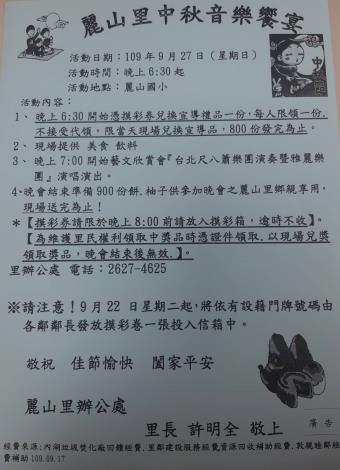 麗山里中秋音樂饗宴
活動日期：109年9月27日（星期日）
活動時間：晚上6:30起
活動地點：麗山國小
中秋
活動內容：
1、晚上6:30開始憑摸彩券兌換宣導禮品一份，每人限領一份.
不接受代領，限當天現場兌換宣導品，800份發完為止。
2、現場提供 美食 飲料
3、晚上7:00開始藝文欣賞會『台北尺八簫樂團演奏暨雅麗樂
團』演唱演出。
4、晚會結束準備900份餅.柚子供參加晚會之麗山里鄉親享用，
現場送完為止！
＊【摸彩券請限於晚上8:00前請放入摸彩箱，逾時不收】。
【為維護里民權利領取中獎品時憑證件領取.以現場兌獎
領取獎品，晚會結束後無效.】。
里辦公處 電話：2627-4625
※請注意！9月22日星期二起，將依有設籍門牌號碼由
各鄰鄰長發放摸彩卷一張投入信箱中。
敬祝 佳節愉快 闔家平安
麗山里辦公處
里長 許明全 敬上
廣告
經費來源：內湖垃圾焚化廠回饋經費、里鄰建設服務經費資源回收補助經費、敦親睦鄰經
費補助109.09.17